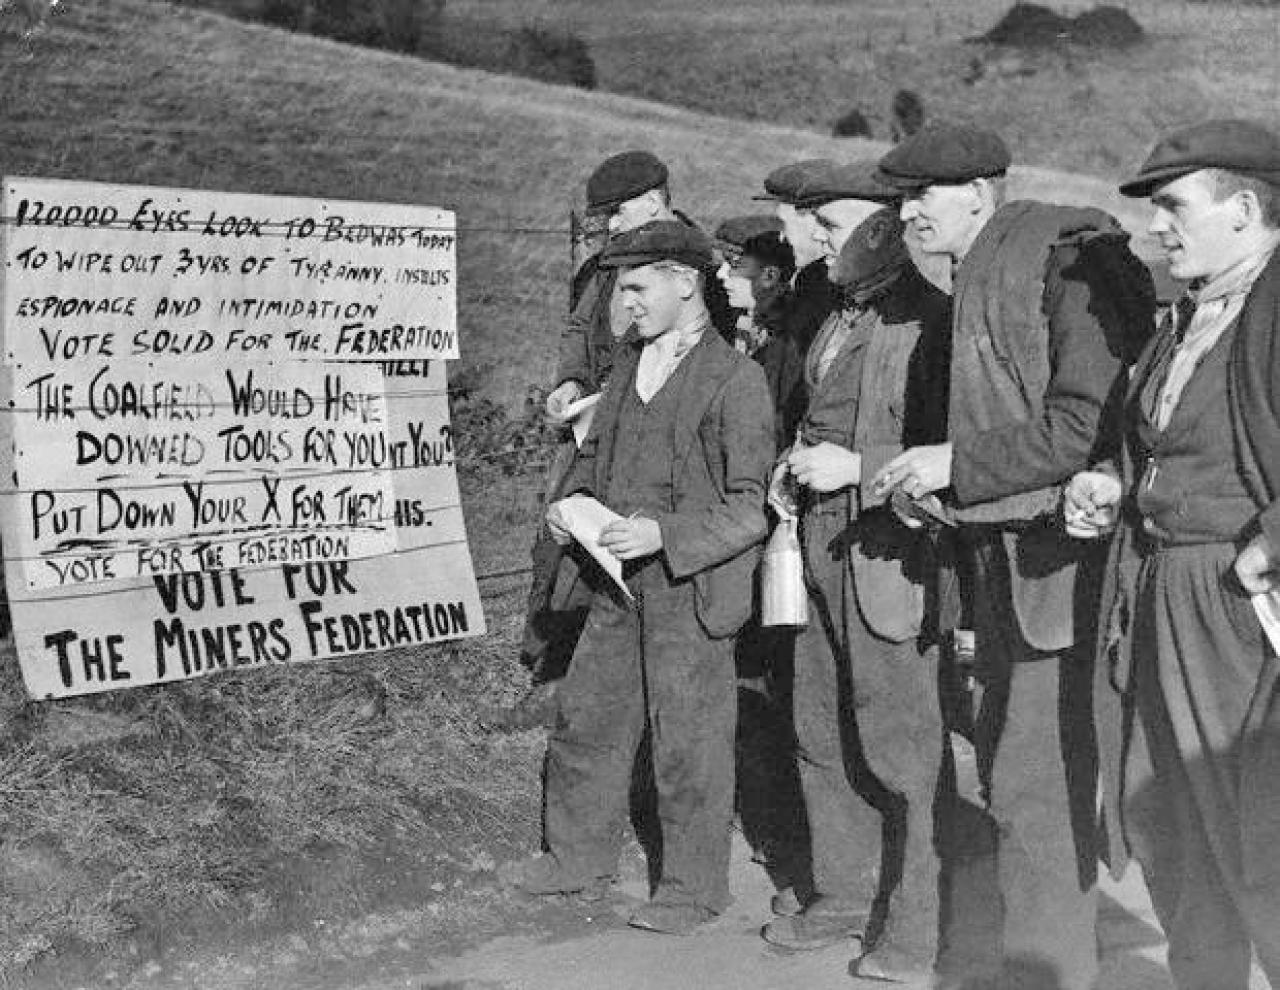 120000 EYES LOOK TO BEDWAS TODAY
TO WIPE OUT 3 YRS OF TYRANNY, INSULTS
ESPIONAGE AND INTIMIDATION
VOTE SOLID FOR THE FEDERATION
THE COALFIELD WOULD HAVE
DOWNED TOOLS FOR YOU NT YOU?
PUT DOWN YOUR X FOR THEM HIS.
VOTE FOR THE FEDERATION
VOTE FOR
THE MINERS FEDERATION